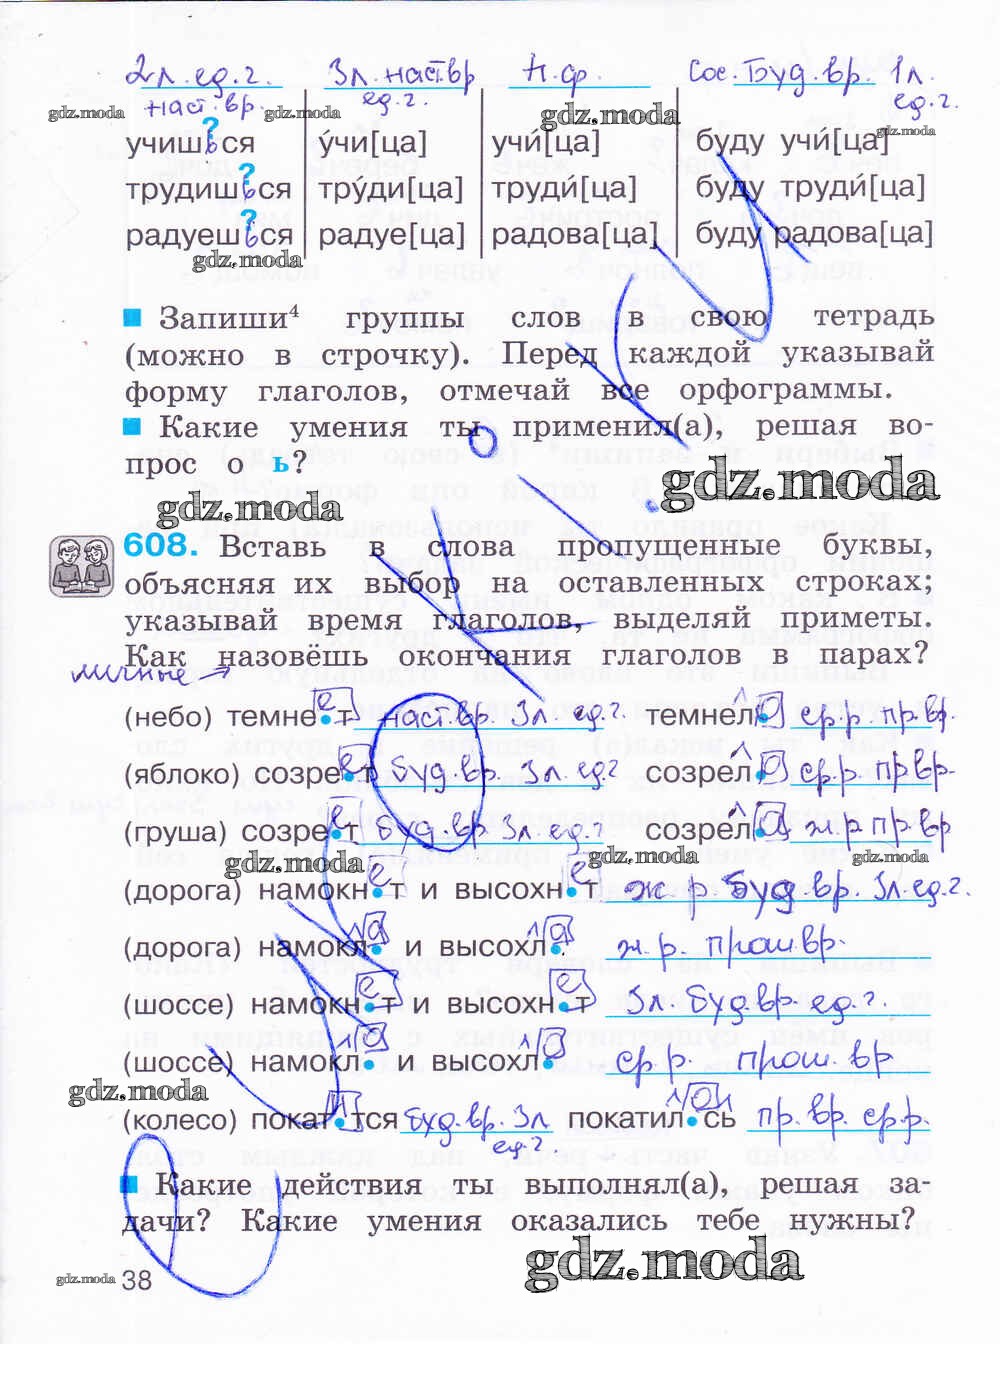 2л. ед. г. 3л. наст. вр Н. ф. Сое. Буд. вр. 1л.
наст. вр. ед. г. ед. г.
gdz.moda gdz.moda gdz.moda gdz.moda
учишься у́чи[ца] учи́[ца] буду учи́[ца]
трудишься тру́ди[ца] труди́[ца] буду труди́[ца]
радуешься радуе[ца] радова[ца] буду радова[ца]
gdz.moda
Запиши⁴ группы слов в свою тетрадь
(можно в строчку). Перед каждой указывай
форму глаголов, отмечай все орфограммы.
Какие умения ты применил(а), решая во-
прос о ь?
gdz.moda gdz.moda
608. Вставь в слова пропущенные буквы,
объясняя их выбор на оставленных строках;
указывай время глаголов, выделяй приметы.
Как назовёшь окончания глаголов в парах?
личные →
(небо) темнеет наст. вр. 3л. ед. г. темнело ср. р пр. вр.
(яблоко) созреет буд. вр. 3л. ед. г созрело ср. р. пр вр.
(груша) созреет буд. вр. 3л. ед. г созрела ж. р пр. вр
gdz.moda gdz.moda gdz.moda
(дорога) намокнет и высохнет ж р. буд. вр. 3л. ед. г.
(дорога) намокла и высохла ж. р. прош. вр.
(шоссе) намокнет и высохнет 3л. буд. вр. ед. г.
(шоссе) намокло и высохло ср. р. прош. вр
gdz.moda
(колесо) покатится буд. вр. 3л покатилось пр. вр. ср. р.
ед. г.
Какие действия ты выполнял(а), решая за-
дачи? Какие умения оказались тебе нужны?
gdz.moda
gdz.moda 38